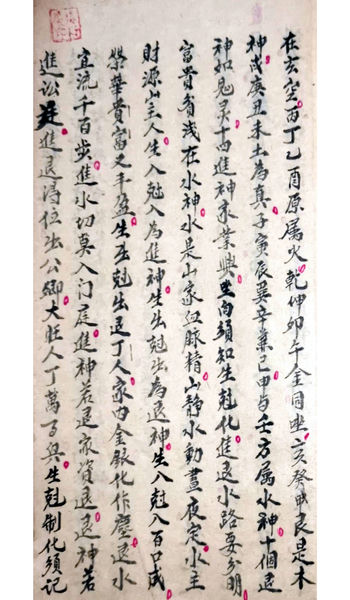 在玄空丙丁乙酉原属火乾坤卯午金同坐亥癸甲艮是木
神戌庚丑未土為真子寅辰巽辛兼己申与壬方属水神十個退
神如鬼灵十四進神家業興坐向須知生尅化進退水路要分明
富貴貧浅在水神水是山家血脉精山静水動晝夜定水主
財源山主人生入尅入為進神生出尅出為退神生入尅入百口成
榮華貴富又丰盈生出尅出退丁人家内金銀化作塵退水
宜流千百步進水切莫入门庭進神若退家資退退神若
進訟是進退得位出公卿大旺人丁萬事興生尅制化須記